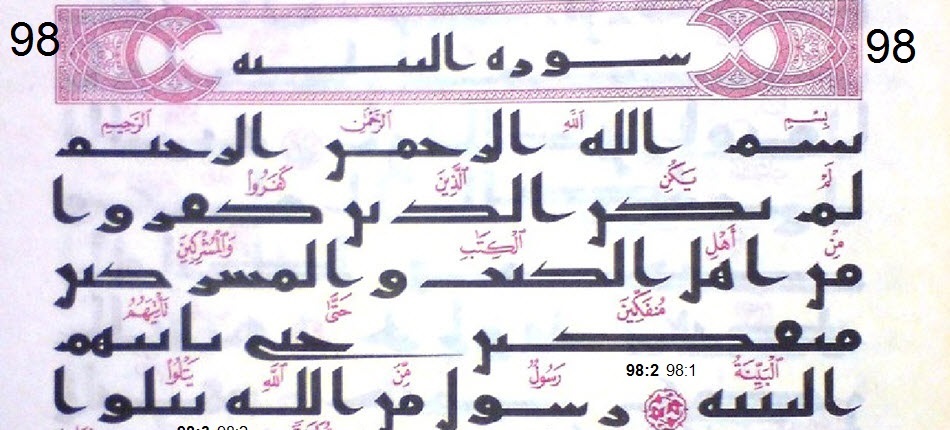 98 سورة البينة 98
بِسْمِ اللَّهِ الرَّحْمَٰنِ الرَّحِيمِ
بسم الله الرحمن الرحيم
لَمْ يَكُنِ الَّذِينَ كَفَرُوا
لم يكن الذين كفروا
مِنْ أَهْلِ الْكِتَٰبِ وَالْمُشْرِكِينَ
من اهل الكتب والمشركين
مُنفَكِّينَ حَتَّىٰ تَأْتِيَهُمُ
منفكين حتى تاتيهم
الْبَيِّنَةُ 98:1 98:2 رَسُولٌ مِّنَ اللَّهِ يَتْلُوا
البينة رسول من الله يتلوا